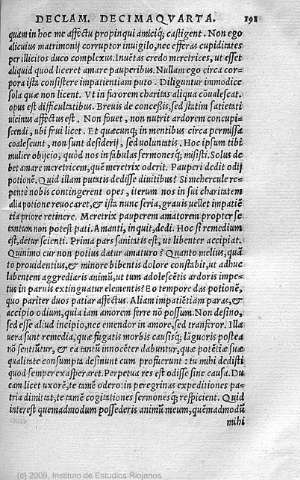 DECLAM. DECIMAQVARTA. 191
quam in hoc me affectu propinqui amiciq; castigent. Non ego
alicuius matrimonij corruptor inuigilo, nec efferas cupiditates
per illicitos duco complexus. Inuêtas credo meretrices, ut esset
aliquid quod liceret amare pauperibus. Nullam ego circa cor-
pora ista cõsistere impatientiam puto. Diliguntur immodice
sola quæ non licent. Vt in furorem charitas aliqua cõualescat,
opus est difficultatibus. Breuis de concessis, sed statim satietati
uicinus affectus est. Non fouet, non nutrit ardorem concupi-
scendi, ubi frui licet. Et quæcunq; in mentibus circa permissa
coalescunt, non sunt desiderij, sed uoluntatis. Hoc ipsum tibi
mulier obijcio, quòd nos in fabulas sermonesq; misisti. Solus de-
bet amare meretricem, quê meretrix oderit. Pauperi dedit odij
potionẽ. Quid illam putatis dedisse diuitibus? Si mehercule re-
pente nobis contingerent opes, iterum nos in sui charitatem
alia potione reuocaret, & ista nunc seria, grauis uellet impatiẽ
tia priore retinere. Meretrix pauperem amatorem propter se
tantùm non potest pati. Amanti, inquit, dedi. Hoc si remedium
est, detur scienti. Prima pars sanitatis est, ut libenter accipiat.
Quinimo cur non potius datur amaturo? Quanto melius, quã
to prouidentius, & minore bibentis dolore constabit, ut adhuc
libentem aggrediaris animũ, ut tum adolescẽtis ardoris impe-
tus in paruis extinguatur elementis? Eo tempore das potionẽ,
quo pariter duos patiar affectus. Aliam impatiẽtiam paras, &
accipio odium, quia iam amorem ferre nõ possum. Non desino,
sed esse aliud incipio, nec emendor in amore, sed transferor. Illa
uera sunt remedia, quæ fugatis morbis causisq; liquoris postea
nõ sentiũtur, & ea tantũ innocẽter dabuntur, quæ potẽtiæ suæ
qualitate cum sumpta desinunt cum profuerunt: tu mihi dedisti
quod semper exasperaret. Perpetua res est odisse sine causa. Du
cam licet uxorẽ, te tamẽ odero: in peregrinas expeditiones pa-
tria dimittat, te tamẽ cogitationes sermonesq; respicient. Quid
interest quemadmodum possederis animũ meum, quẽmadmodũ
mihi
(c) 2009, Instituto de Estudios Riojanos